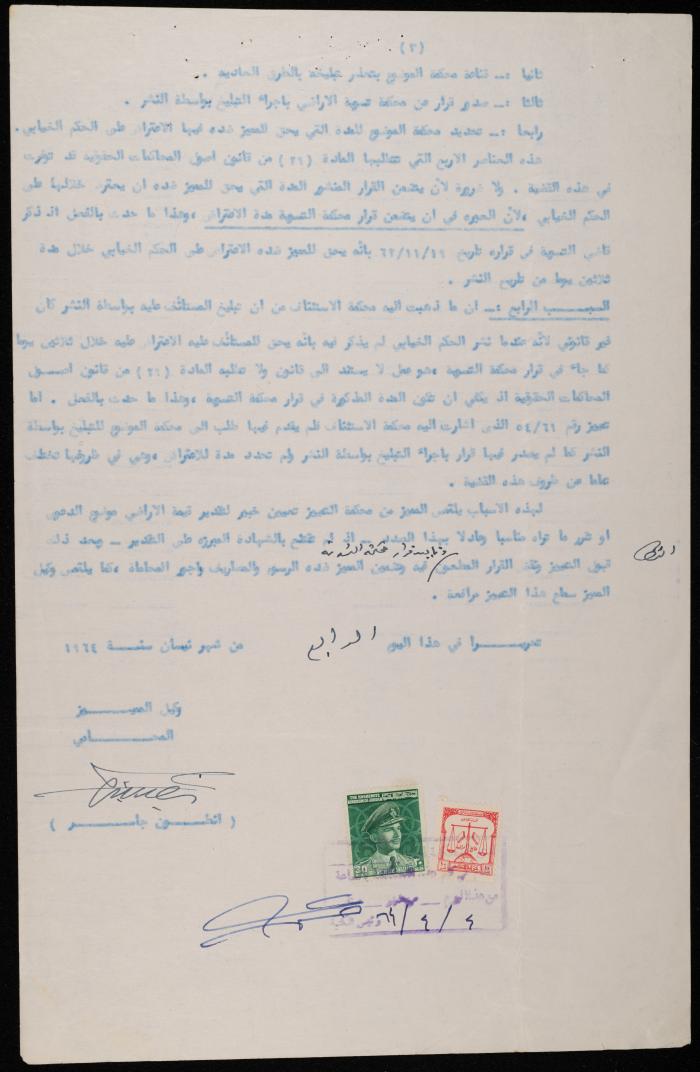 (٣)
ثانيا :ــ قناعة محكمة الموضوع بتعذر تبليغه بالطرق العاديه .
ثالثا :ــ صدور قرار عن محكمة تسوية الاراضي باجراء التبليغ بواسطة النشر .
رابعا :ــ تحديد محكمة الموضوع للمدة التي يحق للمميز ضده فيها الاعتراض على الحكم الغيابي .
هذه العناصر الاربع التي تتطلبها المادة (٢٦) من قانون اصول المحاكمات الحقوقيه قد توفرت
في هذه القضية . ولا ضرورة لأن يتضمن القرار المنشور المدة التي يحق للمميز ضده ان يعترض خلالها على
الحكم الغيابي ،لأن العبره في ان يتضمن قرار محكمة التسوية مدة الاعتراض ،وهذا ما حدث بالفعل اذ ذكر
قاضي التسوية في قراره تاريخ ٦٢/١١/١٩ بانه يحق للمميز ضده الاعتراض على الحكم الغيابي خلال مدة
ثلاثين يوما من تاريخ النشر .
السبــب الرابع :ــ ان ما ذهبت اليه محكمة الاستئناف من ان تبليغ المستأنف عليه بواسطة النشر كان
غير قانوني لأنه عندما نشر الحكم الغيابي لم يذكر فيه بانه يحق للمستأنف عليه الاعتراض عليه خلال ثلاثين يوما
كما جاء في قرار محكمة التسوية ،هو عمل لا يستند الى قانون ولا تتطلبه المادة (٢٦) من قانون اصــول
المحاكمات الحقوقية اذ يكفي ان تكون المدة المذكورة في قرار محكمة التسوية ،وهذا ما حدث بالفعل . اما
تمييز رقم ٥٤/٦١ الذى اشارت اليه محكمة الاستئناف فلم يقدم فيها طلب الى محكمة الموضوع للتبليغ بواسطة
النشر كما لم يصدر فيها قرار باجراء التبليغ بواسطة النشر ولم تحدد مدة للاعتراض ،وهي في ظروفها تختلف
تماما عن ظروف هذه القضية .
لهذه الاسباب يلتمس المميز من محكمة التمييز تعيين خبير لتقدير قيمة الاراضي موضوع الدعوى
او تقرر ما تراه مناسبا وعادلا بهذا الصدد ــ اذ لم تقتنع بالشهادة المبرزه على التقدير ــ وبعد ذلك
وتأييد قرار محكمة التسوية
قبول التمييز ونقض القرار المطعون فيه وتضمين المميز ضده الرسوم والمصاريف واجور المحاماة ،كما يلتمس وكيل
المميز سماع هذا التمييز مرافعة .
تحريــرا في هذا اليوم الرابع من شهر نيسان سنــة ١٩٦٤
وكيل المميــز
المحــامي
( انطــون جاســر )
THE HASHEMITE
٤/٤/٦٤